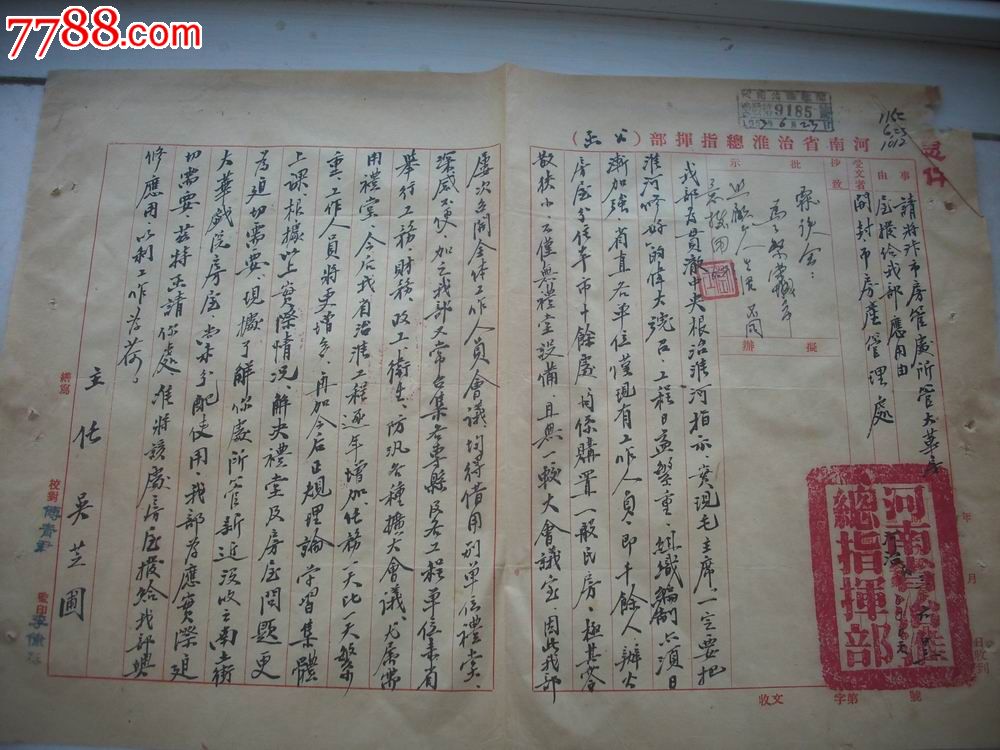 7788.com
中国收藏热线
9185
1953 6 23
河南省治淮總指揮部（公函）
事由
請將汴市房管處所管大華
屋撥給我部應用由
受文者
開封市房產管理處
抄致
批示
擬辦
河南省治淮
總指揮部
年 月 日
收文 字第 號
我部为貫澈中央根治淮河指示，实現毛主席"一定要把
淮河修好"的偉大號召，工程日益繁重，組織編制亦須日
漸加強，省直各单位僅現有工作人員，即千餘人，辦公
房屋分住本市十餘處，均係購置一般民房，極其窄
敞狹小，不僅無禮堂設備，且無一較大會議室，因此我部
屡次召開全体工作人員會議，均待借用别单位禮堂，
深感不便，加之我部又常召集各專縣及各工程单位来省
举行工務、財務、政工、衛生、防汛各種擴大會議，尤属需
用禮堂。今后我省治淮工程逐年增加，任務一天比一天繁
重，工作人員將更增多，再加今后正規理論学習集體
上課，根據以上实際情况，解决禮堂及房屋問題更
为迫切需要，現據了解你處所管新近没收之南土街
大華戲院房屋尚未分配使用，我部为應實際迫
切需要，茲特函請你處准將該處房屋撥給我部與
修應用以利工作为荷。
主任 吳芝圃
繕寫
校對 傅青
監印 李